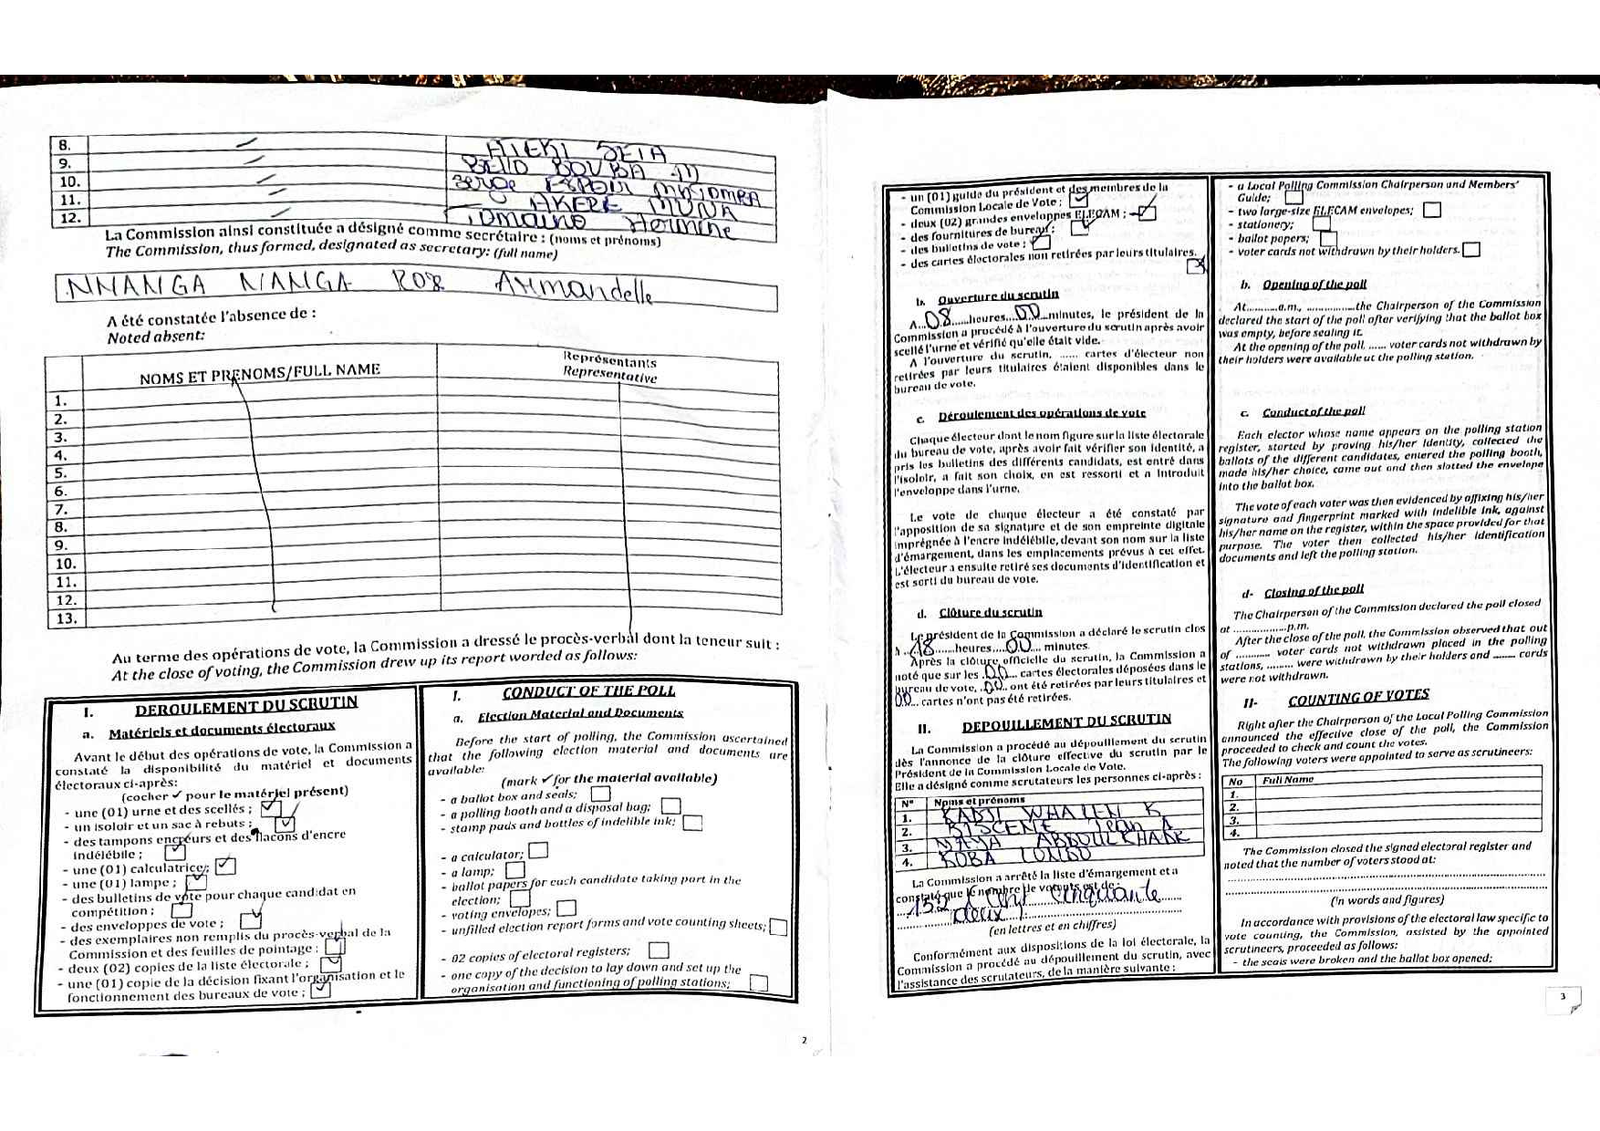 8. ATEKI SETA
9. BELLO BOUBA M
10. Serge ESPOIR MATOMBA
11. AKERE MUNA
12. Tomaino Hermine
La Commission ainsi constituée a désigné comme secrétaire : (noms et prénoms)
The Commission, thus formed, designated as secretary: (full name)
NNANGA NANGA ROSE Armandelle
A été constatée l'absence de :
Noted absent:
NOMS ET PRENOMS/FULL NAME
Représentants
Representative
1.
2.
3.
4.
5.
6.
7.
8.
9.
10.
11.
12.
13.
Au terme des opérations de vote, la Commission a dressé le procès-verbal dont la teneur suit :
At the close of voting, the Commission drew up its report worded as follows:
I. DEROULEMENT DU SCRUTIN
a. Matériels et documents électoraux
Avant le début des opérations de vote, la Commission a
constaté la disponibilité du matériel et documents
électoraux ci-après:
(cocher ✓ pour le matériel présent)
- une (01) urne et des scellés ;
- un isoloir et un sac à rebuts ;
- des tampons encreurs et des flacons d'encre
indélébile ;
- une (01) calculatrice;
- une (01) lampe ;
- des bulletins de vote pour chaque candidat en
compétition ;
- des enveloppes de vote ;
- des exemplaires non remplis du procès-verbal de la
Commission et des feuilles de pointage ;
- deux (02) copies de la liste électorale ;
- une (01) copie de la décision fixant l'organisation et le
fonctionnement des bureaux de vote ;
I. CONDUCT OF THE POLL
a. Election Material and Documents
Before the start of polling, the Commission ascertained
that the following election material and documents are
available:
(mark ✓ for the material available)
- a ballot box and seals;
- a polling booth and a disposal bag;
- stamp pads and bottles of indelible ink;
- a calculator;
- a lamp;
- ballot papers for each candidate taking part in the
election;
- voting envelopes;
- unfilled election report forms and vote counting sheets;
- 02 copies of electoral registers;
- one copy of the decision to lay down and set up the
organisation and functioning of polling stations;
2
- un (01) guide du président et des membres de la
Commission Locale de Vote ;
- deux (02) grandes enveloppes ELECAM ;
- des fournitures de bureau ;
- des bulletins de vote ;
- des cartes électorales non retirées par leurs titulaires.
b. Ouverture du scrutin
A...08......heures...00...minutes, le président de la
Commission a procédé à l'ouverture du scrutin après avoir
scellé l'urne et vérifié qu'elle était vide.
A l'ouverture du scrutin, ...... cartes d'électeur non
retirées par leurs titulaires étaient disponibles dans le
bureau de vote.
c. Déroulement des opérations de vote
Chaque électeur dont le nom figure sur la liste électorale
du bureau de vote, après avoir fait vérifier son identité, a
pris les bulletins des différents candidats, est entré dans
l'isoloir, a fait son choix, en est ressorti et a introduit
l'enveloppe dans l'urne.
Le vote de chaque électeur a été constaté par
l'apposition de sa signature et de son empreinte digitale
imprégnée à l'encre indélébile, devant son nom sur la liste
d'émargement, dans les emplacements prévus à cet effet.
L'électeur a ensuite retiré ses documents d'identification et
est sorti du bureau de vote.
d. Clôture du scrutin
Le président de la Commission a déclaré le scrutin clos
à ..18......heures....00... minutes.
Après la clôture officielle du scrutin, la Commission a
noté que sur les .00... cartes électorales déposées dans le
bureau de vote, .00.. ont été retirées par leurs titulaires et
00... cartes n'ont pas été retirées.
II. DEPOUILLEMENT DU SCRUTIN
La Commission a procédé au dépouillement du scrutin
dès l'annonce de la clôture effective du scrutin par le
Président de la Commission Locale de Vote.
Elle a désigné comme scrutateurs les personnes ci-après :
N° Noms et prénoms
1. KADJI WHALEN K
2. BISCENE Jean A
3. MAYA ABDOULKHADR
4. KOBA LONDO
La Commission a arrêté la liste d'émargement et a
constaté que le nombre de votants est de :
152 (cent cinquante
deux)
(en lettres et en chiffres)
Conformément aux dispositions de la loi électorale, la
Commission a procédé au dépouillement du scrutin, avec
l'assistance des scrutateurs, de la manière suivante :
- a Local Polling Commission Chairperson and Members'
Guide;
- two large-size ELECAM envelopes;
- stationery;
- ballot papers;
- voter cards not withdrawn by their holders.
b. Opening of the poll
At..........a.m., ................the Chairperson of the Commission
declared the start of the poll after verifying that the ballot box
was empty, before sealing it.
At the opening of the poll, ...... voter cards not withdrawn by
their holders were available at the polling station.
c. Conduct of the poll
Each elector whose name appears on the polling station
register, started by proving his/her identity, collected the
ballots of the different candidates, entered the polling booth,
made his/her choice, came out and then slotted the envelope
into the ballot box.
The vote of each voter was then evidenced by affixing his/her
signature and fingerprint marked with indelible ink, against
his/her name on the register, within the space provided for that
purpose. The voter then collected his/her identification
documents and left the polling station.
d- Closing of the poll
The Chairperson of the Commission declared the poll closed
at ..................p.m.
After the close of the poll, the Commission observed that out
of ............ voter cards not withdrawn placed in the polling
stations, ......... were withdrawn by their holders and ........ cards
were not withdrawn.
II- COUNTING OF VOTES
Right after the Chairperson of the Local Polling Commission
announced the effective close of the poll, the Commission
proceeded to check and count the votes.
The following voters were appointed to serve as scrutineers:
No Full Name
1.
2.
3.
4.
The Commission closed the signed electoral register and
noted that the number of voters stood at:
(in words and figures)
In accordance with provisions of the electoral law specific to
vote counting, the Commission, assisted by the appointed
scrutineers, proceeded as follows:
- the seals were broken and the ballot box opened;
3